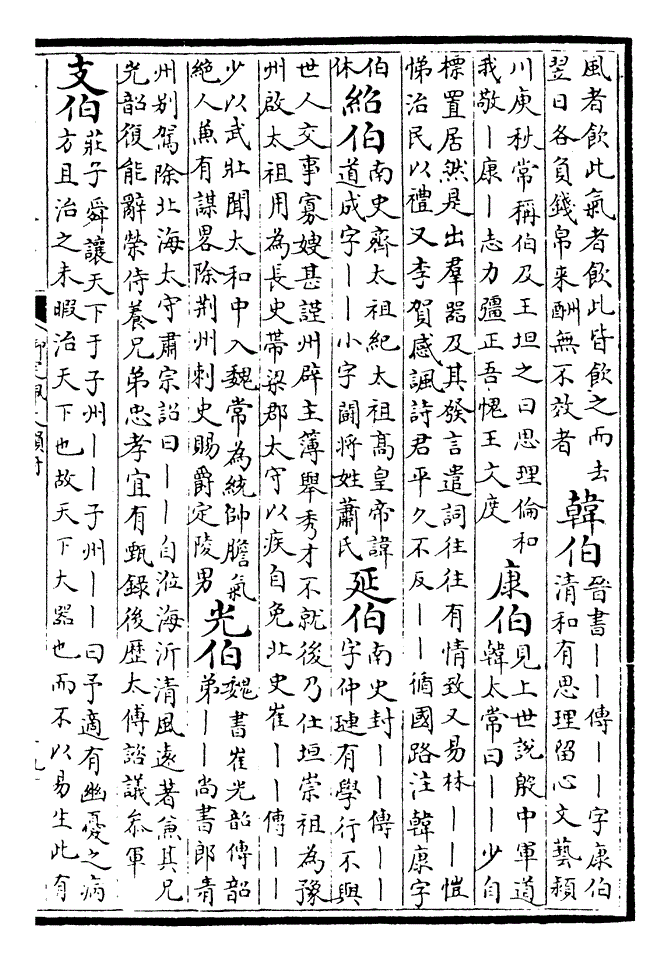 風者飲此氣者飲此皆飲之而去
翌日各負錢帛来酬無不效者
韓伯
晉書——傳——字康伯
清和有思理留心文藝潁
川庾秋常稱伯及王坦之曰思理倫和
我敬—康—志力彊正吾愧王文度
康伯
見上世說殷中軍道
韓太常曰——少自
標置居然是出羣器及其發言遣詞往往有情致又易林——愷
悌治民以禮又李賀感諷詩君平久不反——循國路注韓康字
伯
休
紹伯
南史齊太祖紀太祖高皇帝諱
道成字——小字鬭将姓蕭氏
延伯
南史封——傳——
字仲璉有學行不與
世人交事寡嫂甚謹州辟主薄舉秀才不就後乃仕垣崇祖為豫
州啟太祖用為長史帶梁郡太守以疾自免北史崔——傳——
少以武壯聞太和中入魏常為統帥膽氣
絶人兼有謀畧除荆州刺史賜爵定陵男
光伯
魏書崔光韶傳韶
弟——尚書郎青
州别駕除北海太守肅宗詔曰——自涖海沂清風遠著兼其兄
光韶復能辭榮侍養兄弟忠孝宜有甄錄後歷太傅諮議叅軍
支伯
莊子舜讓天下于子州——子州——曰予適有幽憂之病
方且治之未暇治天下也故天下大器也而不以易生此有